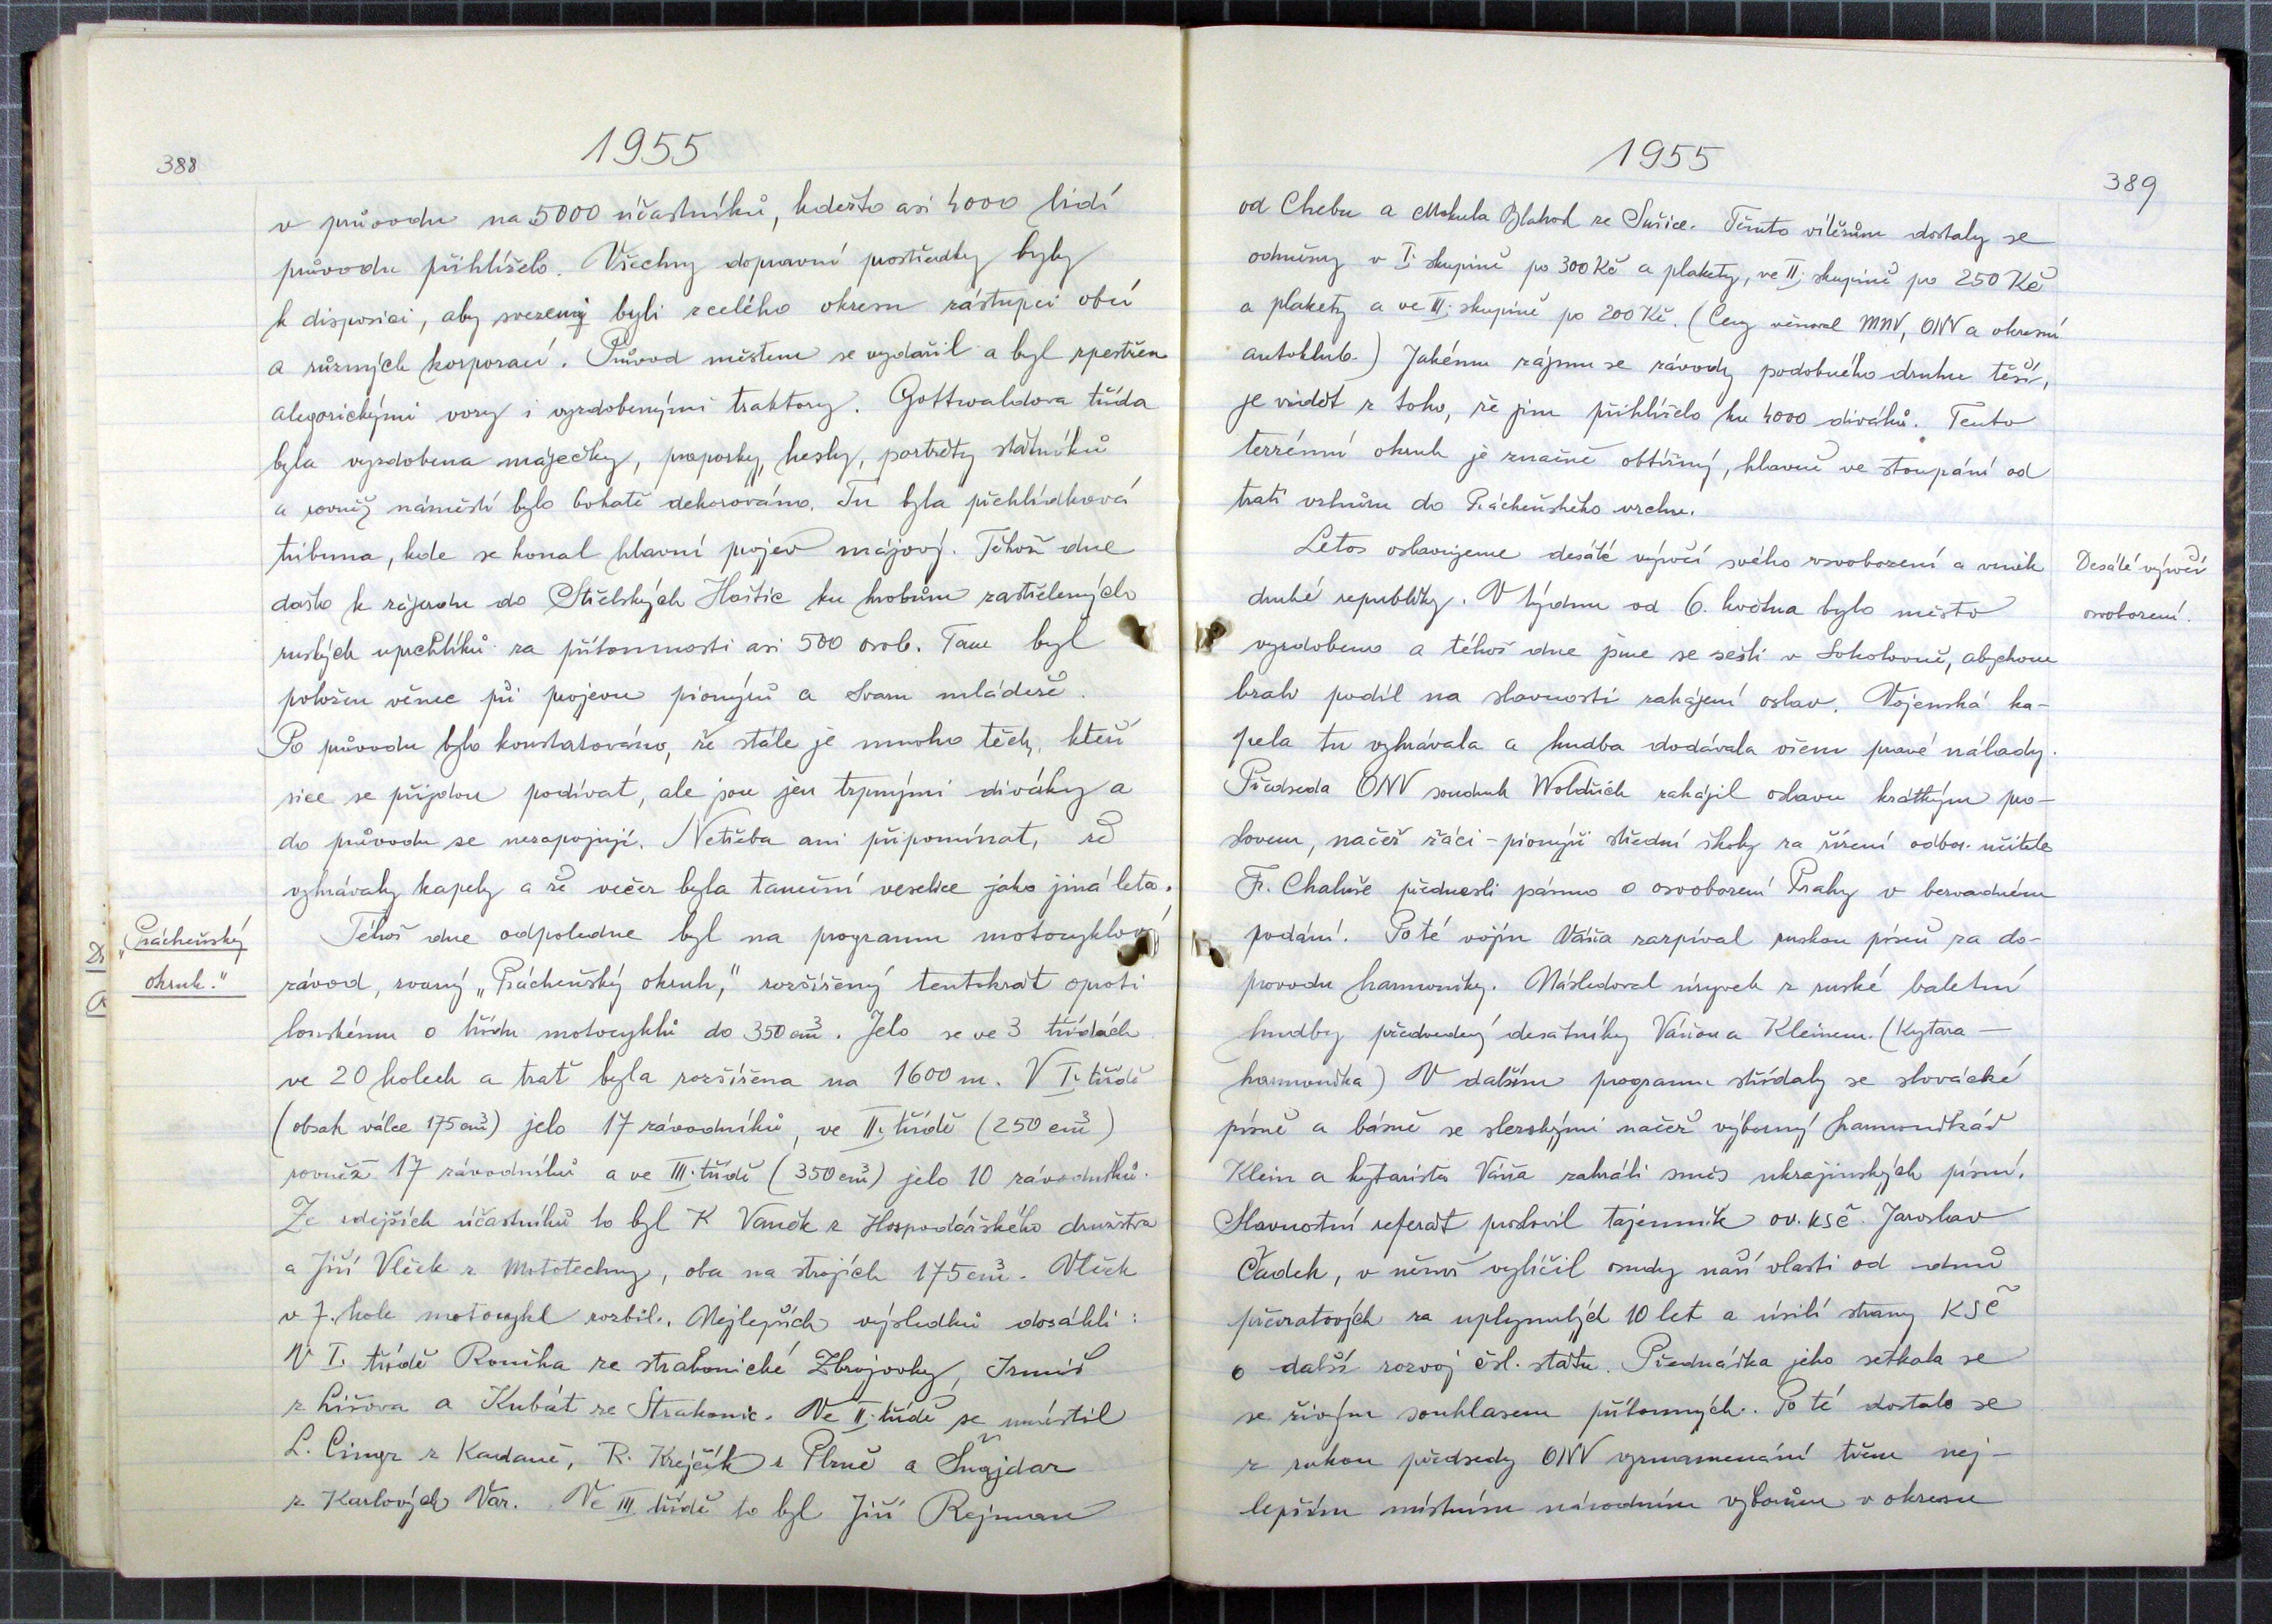 388
1955
v průvodu na 5000 účastníků, kdežto asi 4000 lidí
průvodu přihlíželo. Všechny dopravní prostředky byly
k disposici, aby svezeni byli z celého okresu zástupci obcí
a různých korporací. Průvod městem se vydařil a byl zpestřen
alegorickými vozy i vyzdobenými traktory. Gottwaldova třída
byla vyzdobena máječky, praporky, hesly, portréty státníků
a rovněž náměstí bylo bohatě dekorováno. Tu byla přehlídková
tribuna, kde se konal hlavní projev májový. Téhož dne
došlo k zájezdu do Střelských Hoštic ku hrobům zastřelených
ruských uprchlíků za přítomnosti asi 500 osob. Tam byl
položen věnec při projevu pionýrů a Svazu mládeže.
Po průvodu bylo konstatováno, že stále je mnoho těch, kteří
sice se přijdou podívat, ale jsou jen trpnými diváky a
do průvodu se nezapojují. Netřeba ani připomínat, že
vyhrávaly kapely a že večer byla taneční veselice jako jiná léta.
„Prácheňský
okruh."
Téhož dne odpoledne byl na programu motocyklový
závod, zvaný „Prácheňský okruh," rozšířený tentokrát oproti
loňskému o třídu motocyklů do 350 cm³. Jelo se ve 3 třídách
ve 20 kolech a trať byla rozšířena na 1600 m. V I. třídě
(obsah válce 175 cm³) jelo 17 závodníků, ve II. třídě (250 cm³)
rovněž 17 závodníků a ve III. třídě (350 cm³) jelo 10 závodníků.
Ze zdejších účastníků to byl K Vaněk z Hospodářského družstva
a Jiří Vlček z Mototechny, oba na strojích 175 cm³. Vlček
v 7. kole motocykl rozbil. Nejlepších výsledků dosáhli:
V I. třídě Ronička ze strakonické Zbrojovky, Irmiš
z Lišova a Kubát ze Strakonic. Ve II. třídě se umístil
L. Cingr z Kadaně, R. Krejčík z Plzně a Šnajdar
z Karlových Var. Ve III třídě to byl Jiří Rejman
1955
389
od Chebu a Blahod ze Sušice. Těmto vítězům dostaly se
odměny v I. skupině po 300 Kč a plakety, ve II. skupině po 250 Kč
a plakety a ve III. skupině po 200 Kč. (Ceny věnoval MNV, ONV a okresní
autoklub.) Jakému zájmu se závody podobného druhu těší,
je vidět z toho, že jim přihlíželo ku 4000 diváků. Tento
terrénní okruh je značně obtížný, hlavně ve stoupání od
trati vzhůru do Prácheňského vrchu.
Desáté výročí
osvobození.
Letos oslavujeme desáté výročí svého osvobození a vznik
druhé republiky. V týdnu od 6. května bylo město
vyzdobeno a téhož dne jsme se sešli v Sokolovně, abychom
brali podíl na slavnosti zahájení oslav. Vojenská ka-
pela tu vyhrávala a hudba dodávala všem pravé nálady.
Předseda ONV soudruh Woldřich zahájil oslavu krátkým pro-
slovem, načež žáci-pionýři střední školy za řízení odbor. učitele
Fr. Chaluše přednesli pásmo o osvobození Prahy v bezvadném
podání. Po té vojín Váňa zazpíval ruskou píseň za do-
provodu harmoniky. Následoval úryvek z ruské baletní
hudby předvedený desátníky Váňou a Kleinem. (Kytara —
harmonika) V dalším programu střídaly se slovácké
písně a básně se slezskými načež výborný harmonikář
Klein a kytarista Váňa zahráli směs ukrajinských písní.
Slavnostní referát proslovil tajemník ov. KSČ. Jaroslav
Čadek, v němž vylíčil osudy naší vlasti od dnů
převratových za uplynulých 10 let a úsilí strany KSČ
o další rozvoj čsl. státu. Přednáška jeho setkala se
se živým souhlasem přítomných. Po té dostalo se
z rukou předsedy ONV vyznamenání třem nej-
lepším místním národním výborům v okresu